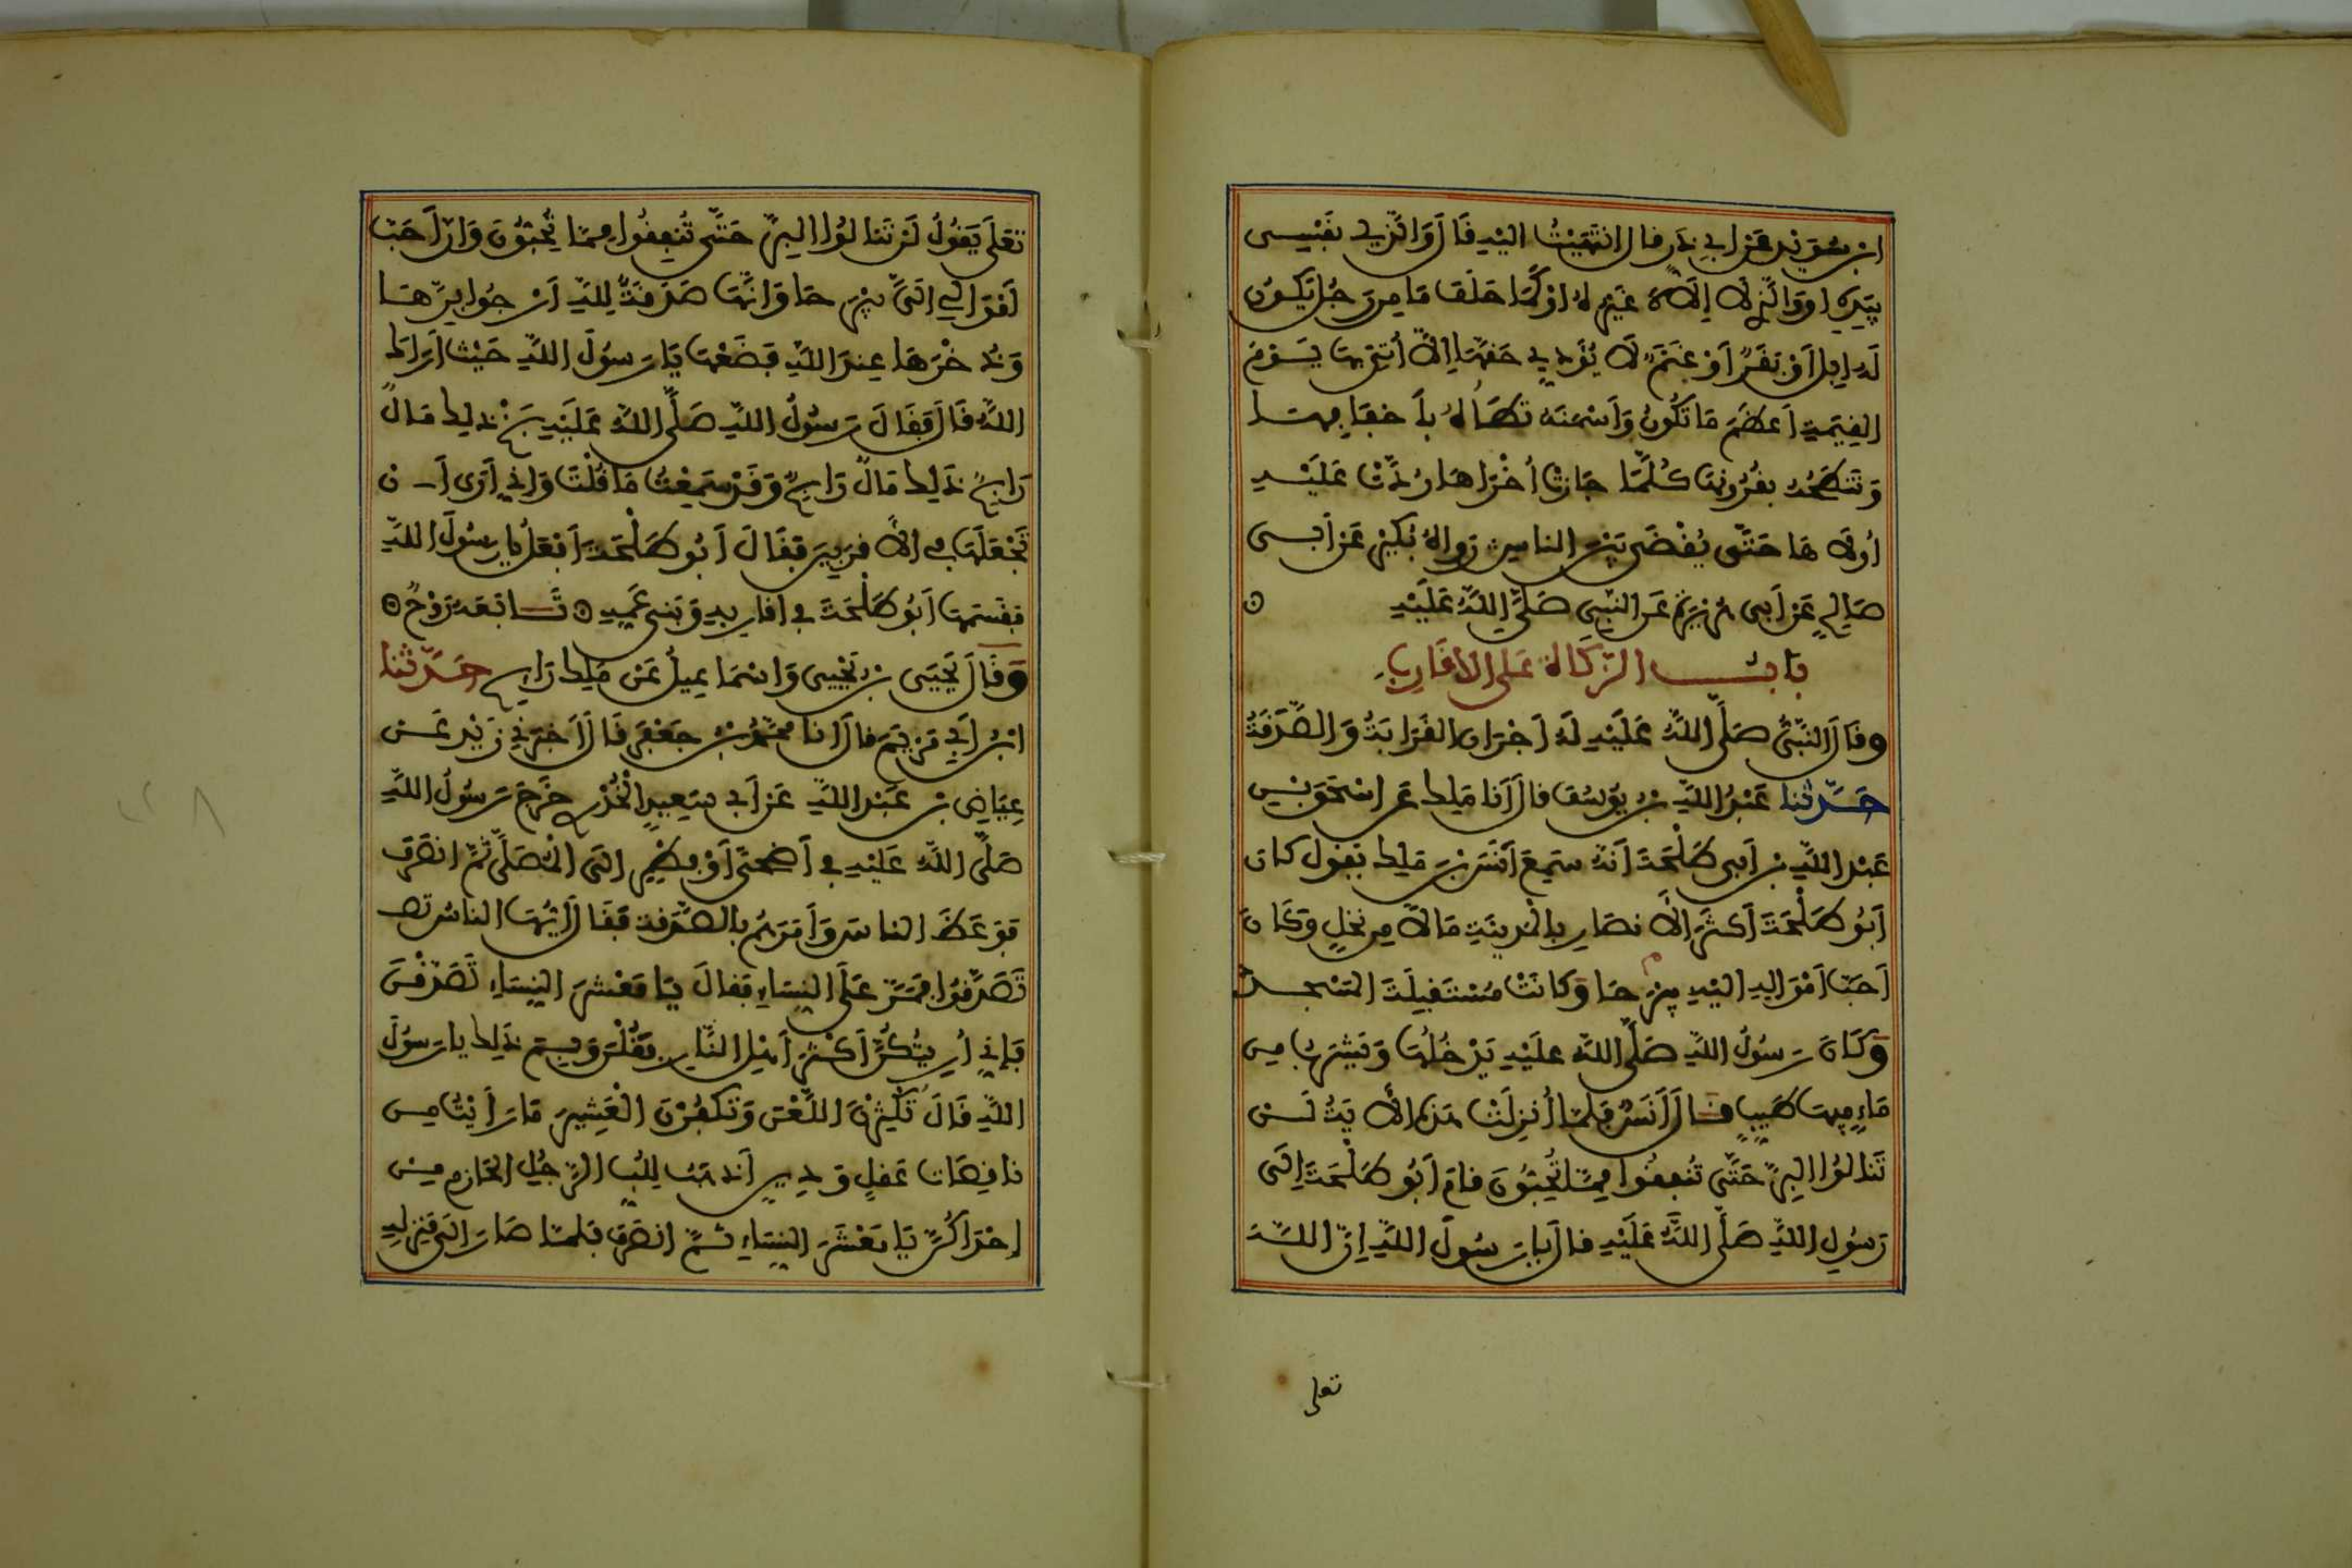 ابْنِ سُوَيْدٍ عَنْ أَبِي ذَرٍّ قال انْتَهَيْتُ إليْهِ قَالَ وَالَّذِي نَفْسِي
بِيَدِهِ أو وَالَّذِي لَا إِلَاهَ غَيْرُهُ أَوْ كَمَا حَلَفَ مَا مِن رَجُلٍ تَكُونُ
لَهُ إِبِلٌ أَوْ بَقَرٌ أَوْ غَنَمٌ لَا يُؤَدِّي حَقَّهَا إِلَّا أُتِيَ بِهَا يَوْمَ
القِيَمَةِ أَعْظَمَ مَا تَكُونُ وَأَسْمَنَهُ تَطَأُهُ بِأَخْفَافِهَا
وَتَنْطَحُهُ بِقُرُونِهَا كُلَّمَا جَازَتْ أُخْرَاهَا رُدَّتْ عَلَيْهِ
أُولَاهَا حَتَّى يُقْضَى بَيْنَ الناسِ رَوَاهُ بُكَيْرٌ عَنْ أَبِي
صَالِحٍ عَنْ أَبِي هُرَيْرَةَ عَنِ النَّبِيِّ صَلَّى اللَّهُ عَلَيْهِ
بَابُ الزَّكَاةِ عَلَى الأَقَارِبِ
وقَالَ النَّبِيُّ صَلَّى اللَّهُ عَلَيْهِ لَهُ أَجْرَانِ القَرَابَةُ وَالصَّدَقَةُ
حَدَّثنا عَبْدُ اللَّهِ بْنُ يُوسُفَ قال أَنَا مَلِك عَن إِسْحَقَ بْنِ
عَبْدِ اللَّهِ بْنِ أَبِي طَلْحَةَ أَنَّهُ سَمِعَ أَنَسَ بْنَ مَلِك يَقُولُ كان
أَبُو طَلْحَةَ أَكْثَرَ الْأَنْصَارِ بِالْمَدِينَةِ مَالًا مِنْ نَخْلٍ وَكَانَ
أَحَبَّ أَمْوَالِهِ إِلَيْهِ بِيرُحَا وَكَانَتْ مُسْتَقْبِلَةَ الْمَسْجِدِ
وَكَانَ رَسُولُ اللَّهِ صَلَّى اللَّهُ عَلَيْهِ يَدْخُلُهَا وَيَشْرَبُ مِن
مَاءٍ فِيهَا طَيِّبٍ قَالَ أَنَسٌ فَلَمَّا أُنْزِلَتْ هَذِهِ الْأَيَةُ لَنْ
تَنَالُوا الْبِرَّ حَتَّى تُنْفِقُوا مِمَّا تُحِبُّونَ قَامَ أَبُو طَلْحَةَ إِلَى
رَسُولِ اللَّهِ صَلَّى اللَّهُ عَلَيْهِ قال يا رَسُولَ اللَّهِ إِنَّ اللَّهَ
تعلى
تَعَلَى يَقُولُ لَنْ تَنَالُوا الْبِرَّ حَتَّى تُنْفِقُوا مِمَّا تُحِبُّونَ وَإِنَّ أَحَبَّ
أَمْوَالِي إِلَيَّ بِيرُحَا وَإِنَّهَا صَدَقَةٌ لِلَّهِ أَرْجُوا بِرَّهَا
وَذُخْرَهَا عِنْدَ اللَّهِ فَضَعْهَا يَا رَسُولَ اللَّهِ حَيْثُ أَرَاكَ
اللَّهُ قَالَ فَقَالَ رَسُولُ اللَّهِ صَلَّى اللَّهُ عَلَيْهِ بَخْ ذَلِك مَالٌ
رَابِحٌ ذَلِك مَالٌ رَابِحٌ وَقَدْ سَمِعْتُ مَا قُلْتَ وَإِنِّي أَرَى أَن
تَجْعَلَهَا فِي الْأَقْرَبِينَ فَقَالَ أَبُو طَلْحَةَ أَفْعَلُ يا رَسُولَ اللَّهِ
فَقَسَمَهَا أَبُو طَلْحَةَ فِي أَقَارِبِهِ وَبَنِي عَمِّهِ تَابَعَهُ رَوْحٌ
وَقَالَ يَحْيَى بْنُ يَحْيَى وَإِسْمَاعِيلُ عَنْ مَلِك رَايِح حَدَّثنا
ابْنُ أَبِي مَرْيَمَ قال أَنا مُحَمَّدُ بْنُ جَعْفَرٍ قَالَ أَخْبَرَنِي زَيْدٌ عَنْ
عِيَاضِ بْنِ عَبْدِ اللَّهِ عَنْ أَبِي سَعِيدٍ الْخُدْرِي خَرَجَ رَسُولُ اللَّهِ
صَلَّى اللَّهُ عَلَيْهِ فِي أَضْحَى أَوْ فِطْرٍ إِلَى الْمُصَلَّى ثُمَّ انْصَرَفَ
فَوَعَظَ الناسَ وَأَمَرَهُمْ بِالصَّدَقَةِ فَقَالَ أَيُّهَا الناسُ تص
تَصَدَّقُوا فَمَرَّ عَلَى النِّسَاءِ فَقَالَ يَا مَعْشَرَ النِّسَاءِ تَصَدَّقْنَ
فَإِنِّي أُرِيتُكُنَّ أَكْثَرَ أَهْلِ النَّارِ فَقُلْنَ وَبِمَ ذَلِك يا رَسُولَ
اللَّهِ قَالَ تُكْثِرْنَ اللَّعْنَ وَتَكْفُرْنَ الْعَشِيرَ مَا رَأَيْتُ مِن
نَاقِصَاتِ عَقْلٍ وَدِينٍ أَذْهَبَ لِلُبِّ الرَّجُلِ الْحَازِمِ مِنْ
إِحْدَاكُنَّ يَا مَعْشَرَ النِّسَاءِ ثُمَّ انْصَرَفَ فَلَمَّا صَارَ إِلَى مَنْزِلِهِ